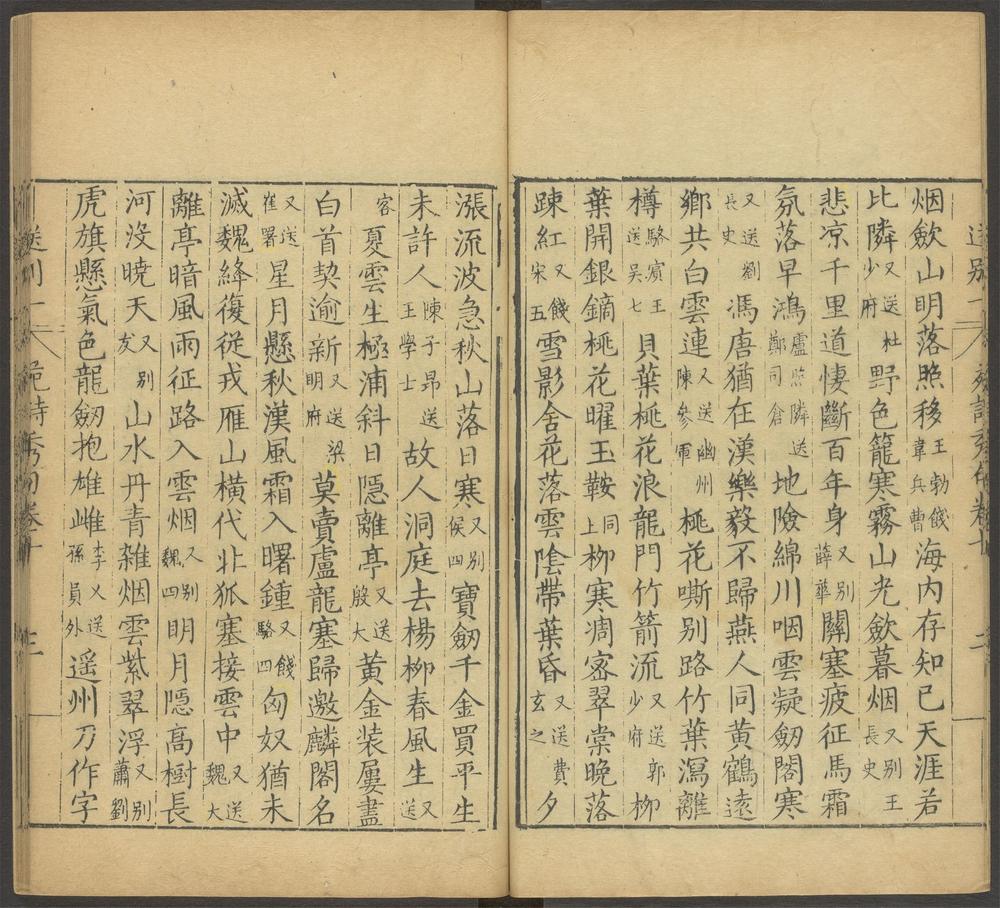 烟斂山明落照移王勃餞韋兵曹海内存知已天涯若
比隣又送杜少府野色籠寒霧山光斂暮烟又别王長史
悲凉千里道悽斷百年身又别薛華關塞疲征馬霜
氛落早鴻盧照隣送鄭司倉地險綿川咽雲疑劒閣寒
又送劉長史馮唐猶在漢樂毅不歸燕人同黄鶴遠
鄉共白雲連又送幽州陳參軍桃花嘶别路竹葉瀉離
樽駱賓王送吴七貝葉桃花浪龍門竹箭流又送郭少府柳
葉開銀鏑桃花曜玉鞍同上柳寒凋宻翠棠晩落
踈紅又餞宋五雪影含花落雲陰帶葉昏又送費玄之夕
漲流波急秋山落日寒又别侯四寶劒千金買平生
未許人陳子昂送王學士故人洞庭去楊柳春風生又送
客夏雲生極浦斜日隱離亭又送殷大黄金装屢盡
白首契逾新又送梁明府莫賣盧龍塞歸邀麟閣名
又送崔署星月懸秋漢風霜入曙鍾又餞駱四匈奴猶未
滅魏絳復從戎雁山横代北狐塞接雲中又送魏大
離亭暗風雨征路入雲烟又别魏四明月隱髙樹長
河没曉天又别友山水丹青雜烟雲紫翠浮又别蕭劉
虎旗懸氣色龍劒抱雄雌李乂送孫員外遥州刀作字